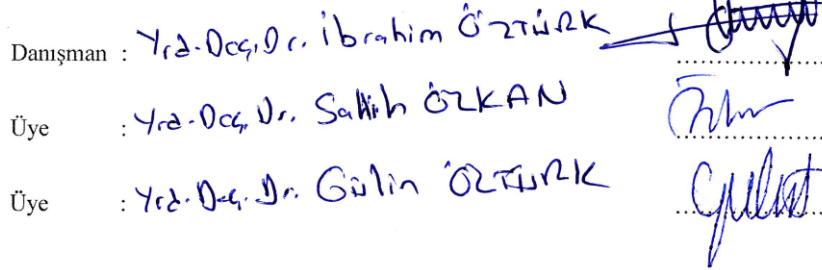 Danışman : Yrd. Doç. Dr. İbrahim ÖZTÜRK
Üye : Yrd. Doç. Dr. Salih ÖZKAN
Üye : Yrd. Doç. Dr. Gülin ÖZTÜRK